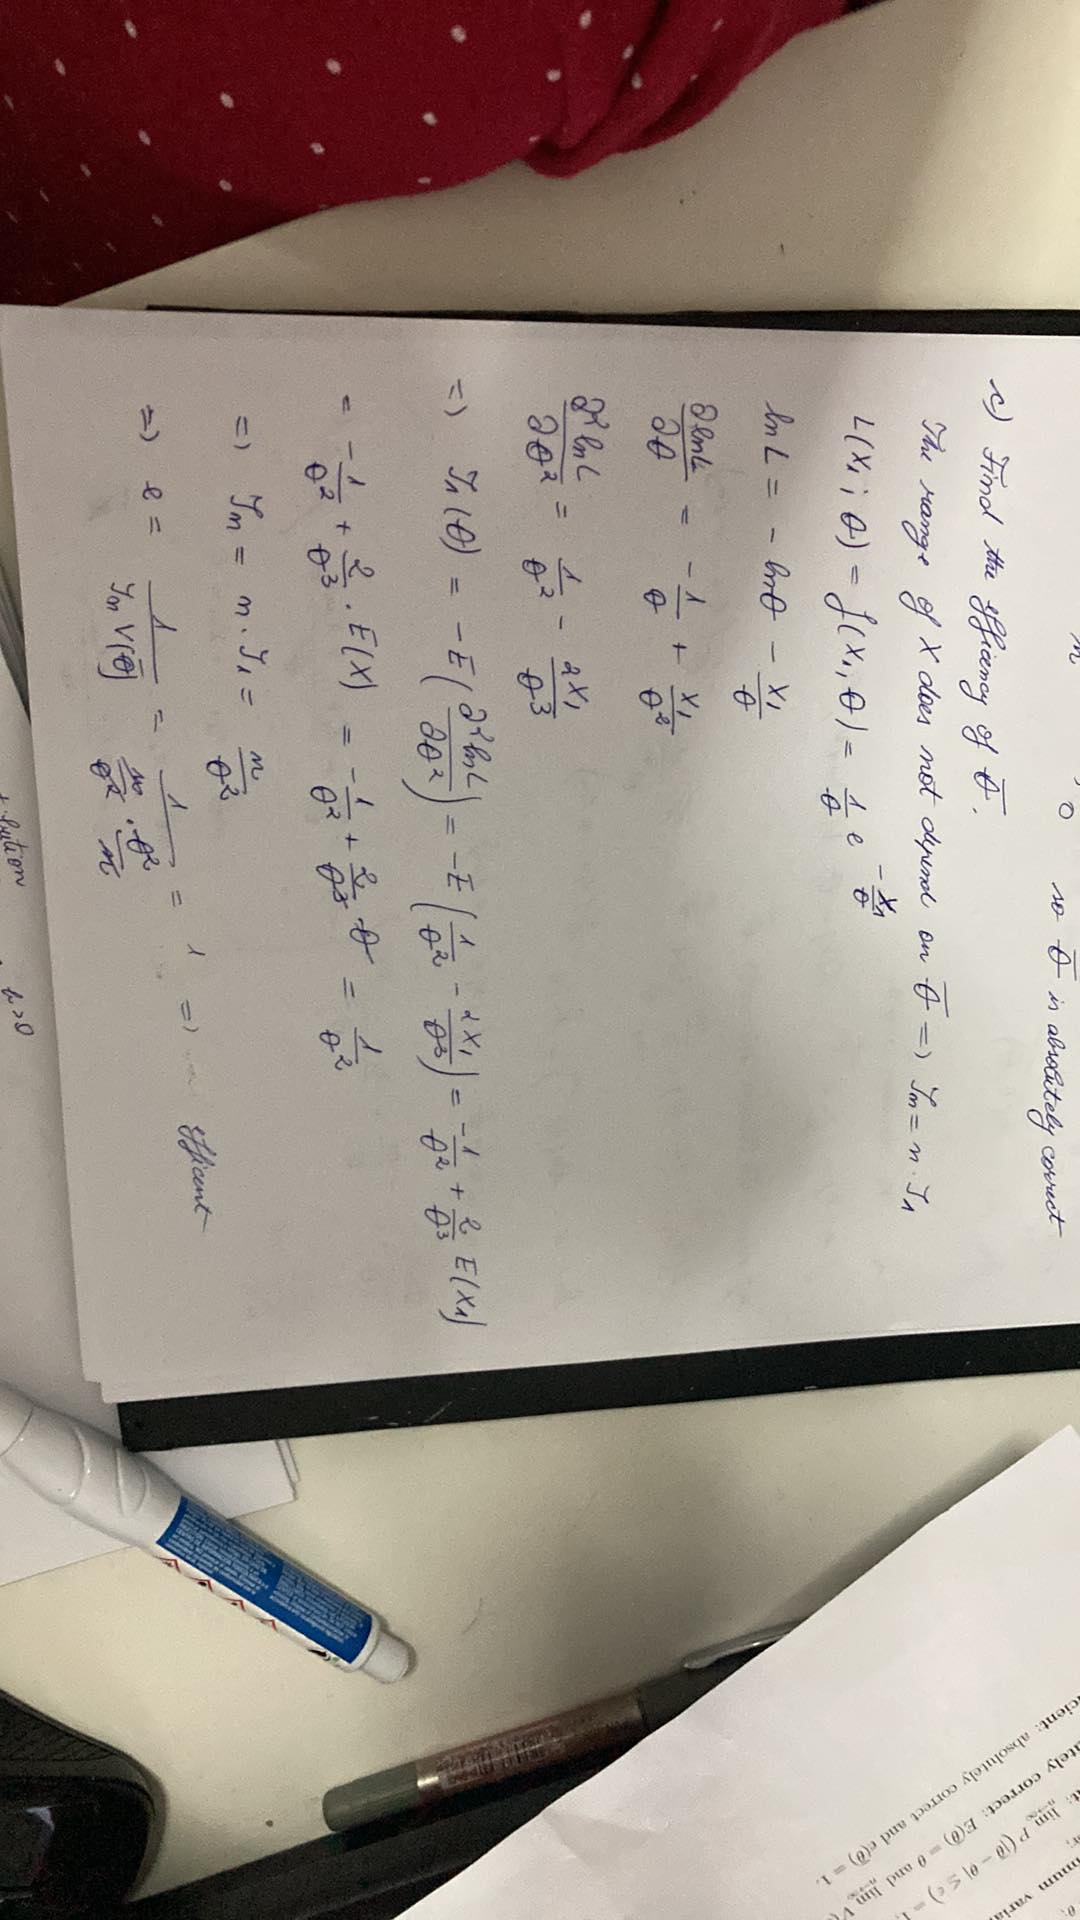 n , 0 so θ̅ is absolutely correct
c) Find the efficency of θ̅.
The range of X does not depend on θ̅ => I_n = n · I_1
L(X_1; θ) = f(X_1, θ) = 1/θ e^(-X_1/θ)
ln L = - ln θ - X_1/θ
∂lnL/∂θ = -1/θ + X_1/θ^2
∂²lnL/∂θ² = 1/θ² - 2X_1/θ³
=> I_1(θ) = -E(∂²lnL/∂θ²) = -E(1/θ² - 2X_1/θ³) = -1/θ² + 2/θ³ E(X_1)
= -1/θ² + 2/θ³ · E(X) = -1/θ² + 2/θ³ θ = 1/θ²
=> I_n = n · I_1 = n/θ²
=> e = 1/(I_n V(θ̅)) = 1/(n/θ² · θ²/n) = 1 => efficent
bution
h>0
θ;
mum varia
or;
nt: lim n→∞ P(|θ̅ - θ| ≤ ε) = 1,
tely correct: E(θ̅) = θ and lim n→∞ V(
cient: absolutely correct and e(θ̅) = 1.